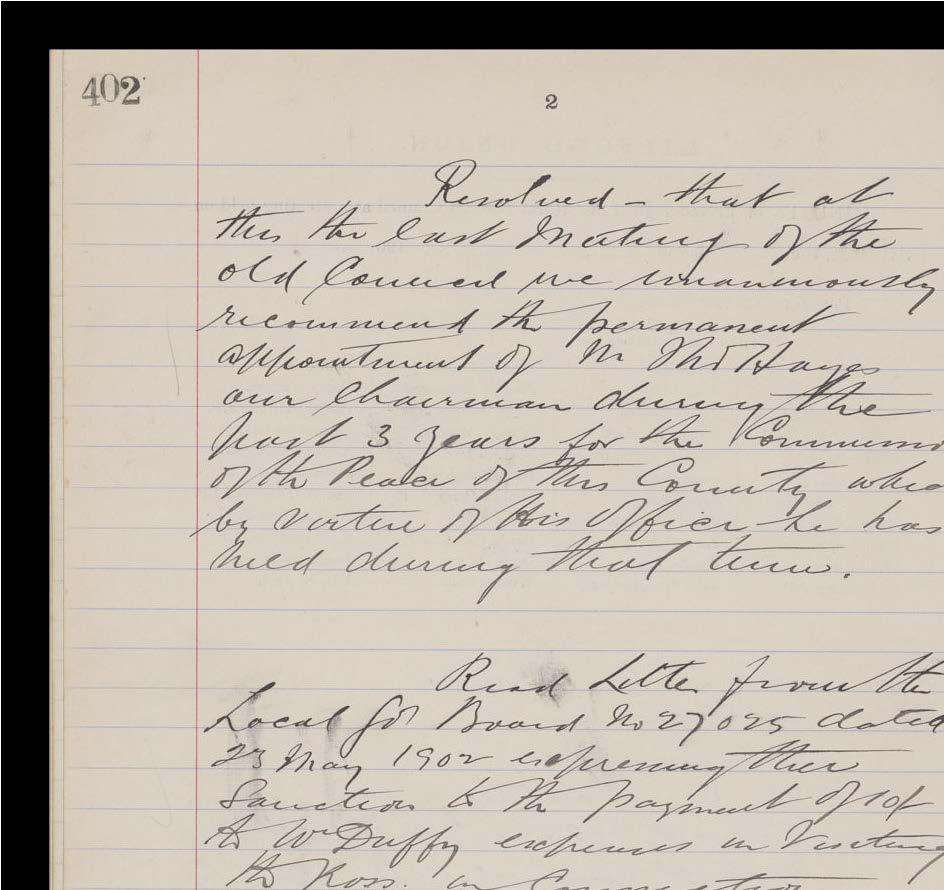 402
2
Resolved – that at
this the last Meeting of the
old Council we unanimously
recommend the permanent
appointment of Mr Thos Hayes
our Chairman during the
past 3 years for the Commissio
of the Peace of this County whic
by virtue of his Office he has
held during that time.
Read Letter from the
Local Gov Board No 27025 dated
23 May 1902 expressing their
Sanction to the payment of
to Wm Duffy expenses in Visiting
the Ross. in